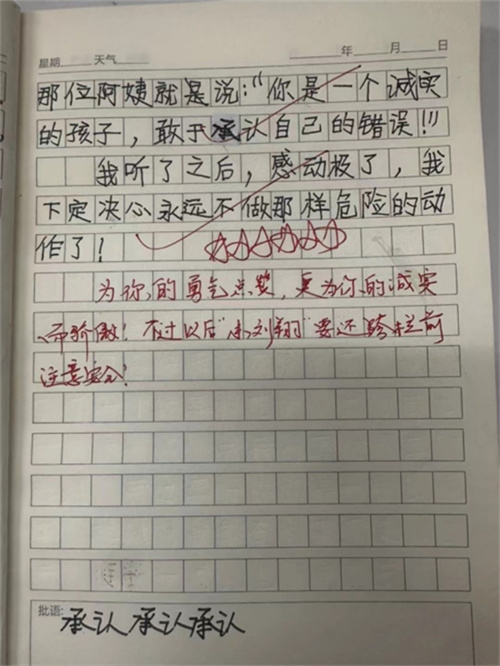 星期 天气 年 月 日
那位阿姨就是说:“你是一个诚实
的孩子,敢于承认自己的错误!”
我听了之后,感动极了,我
下定决心永远不做那样危险的动
作了!
为你的勇气点赞,更为你的诚实
而骄傲!不过以后“小刘翔”要还跨栏前
注意安全!
批语:承认承认承认